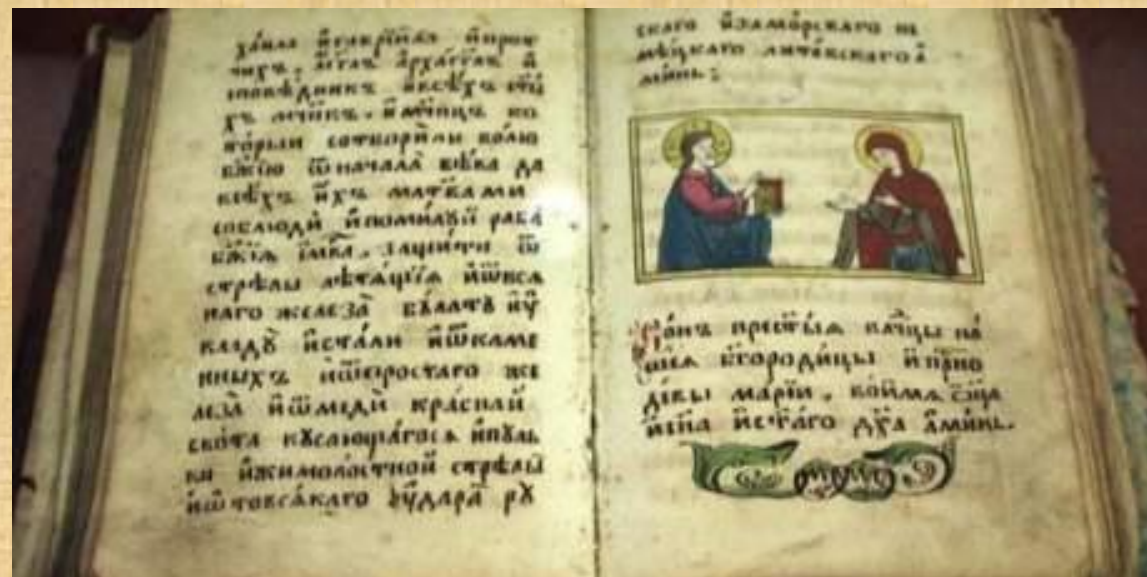 хаила и҆гаврїила и҆проч
чихъ, а҆гг҃лъ а҆рха́гг҃лъ и҆
споведникъ и҆всѣхъ ст҃ы
хъ мч҃нкъ. и҆мч҃ницъ ко
то́рыи сотвори́ли во́лю
бж҃їю ѿ нача́ла вѣ́ка да
всѣ́хъ и҆хъ мл҃твами
соблюди́ и҆поми́луй раба̀
бж҃їѧ и҆мк҃а. защи́ти ѿ
стрѣлы̀ лѣтѧ́щїѧ и҆ѿвсѧ
наго желѣза̀ бꙋлатꙋ и҆ꙋ
кладꙋ̀ и҆ста́ли и҆ѿкаме
нныхъ и҆ѿпростаго же
лѣза̀ и҆ѿмѣдѝ кра́снын
скота кꙋса́ющагосѧ и҆пꙋль
ки и҆жимолостной стрѣлы̀
и҆ѿтовсѧ́каго ꙋ҆да́ра рꙋ
скаго и҆замо́рскаго не
мѣ́цкаго лито́вскаго а҆
ми́нь:
со́нъ прест҃ы́ѧ влч҃цы на́
шеѧ бг҃оро́дицы и҆при́сно
дѣ́вы марі́и. во и҆мѧ ѻ҆ц҃а
и҆сн҃а и҆ст҃а́го дх҃а а҆ми́нь.